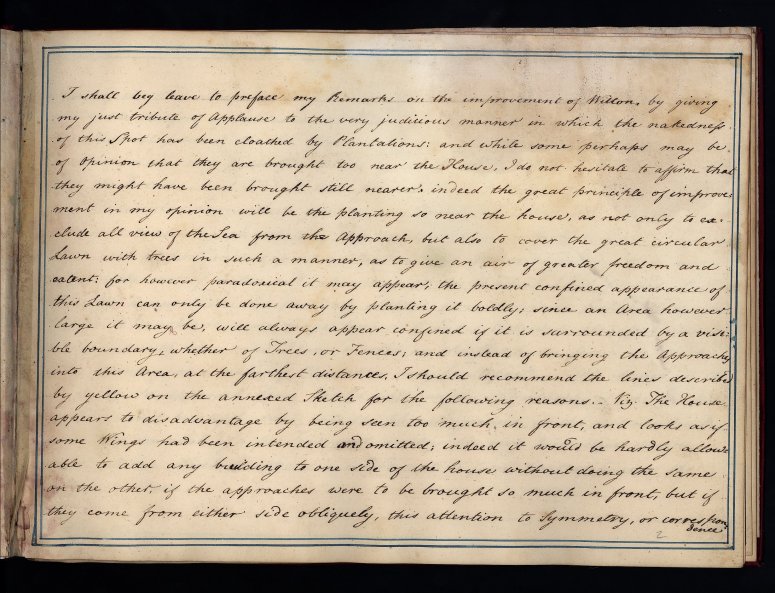 I shall beg leave to preface my Remarks on the improvement of Wilton, by giving
my just tribute of Applause to the very judicious manner in which the nakedness
of this Spot has been cloathed by Plantations: and while some perhaps may be
of opinion that they are brought too near the House, I do not hesitate to affirm that
they might have been brought still nearer; indeed the great principle of improve
ment in my opinion will be the planting so near the house, as not only to ex-
clude all view of the Sea from the Approach, but also to cover the great circular
Lawn with trees in such a manner, as to give an air of greater freedom and
extent; for however paradoxical it may appear, the present confined appearance of
this Lawn can only be done away by planting it boldly; since an Area however
large it may be, will always appear confined if it is surrounded by a visi-
ble boundary, whether of Trees, or Fences; and instead of bringing the Approaches
into this Area, at the farthest distances, I should recommend the lines described
by yellow on the annexed Sketch for the following reasons. – Viz. The House
appears to disadvantage by being seen too much in front, and looks as if
some Wings had been intended and omitted; indeed it would be hardly allow-
able to add any building to one side of the house without doing the same
on the other, if the approaches were to be brought so much in front, but if
they come from either side obliquely, this attention to Symmetry, or correspon
dence
2